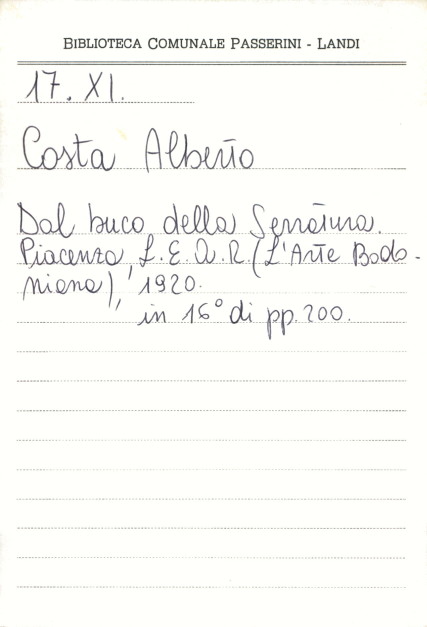 BIBLIOTECA COMUNALE PASSERINI - LANDI
17. XI.
Costa Alberto
Dal buco della Serratura.
Piacenza, L.E.A.R. (L'Arte Bodo-
niana), 1920.
in 16° di pp. 200.